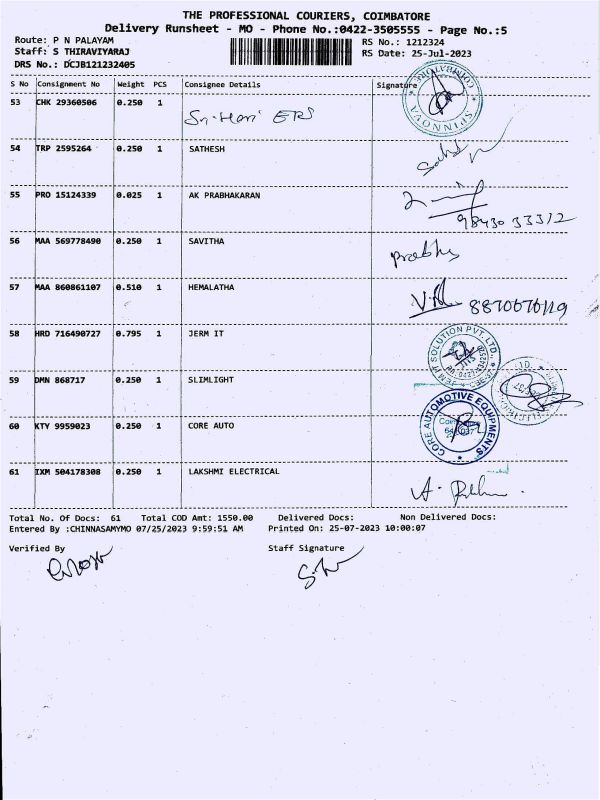 THE PROFESSIONAL COURIERS, COIMBATORE
Delivery Runsheet - MO - Phone No.:0422-3505555 - Page No.:5
Route: P N PALAYAM
RS No.: 1212324
Staff: S THIRAVIYARAJ
RS Date: 25-Jul-2023
DRS No.: DCJB121232405
S No Consignment No Weight PCS Consignee Details Signature
53 CHK 29360506 0.250 1 Sri Hari ERS
54 TRP 2595264 0.250 1 SATHESH
55 PRO 15124339 0.025 1 AK PRABHAKARAN
98430 33312
56 MAA 569778490 0.250 1 SAVITHA Prabhu
57 MAA 860861107 0.510 1 HEMALATHA 8870676119
58 HRD 716490727 0.795 1 JERM IT
59 DMN 868717 0.250 1 SLIMLIGHT
CORE AUTOMOTIVE EQUIPMENTS
60 KTY 9959023 0.250 1 CORE AUTO
61 IXM 504178308 0.250 1 LAKSHMI ELECTRICAL
Total No. Of Docs: 61 Total COD Amt: 1550.00 Delivered Docs: Non Delivered Docs:
Entered By :CHINNASAMYMO 07/25/2023 9:59:51 AM Printed On: 25-07-2023 10:00:07
Verified By Staff Signature